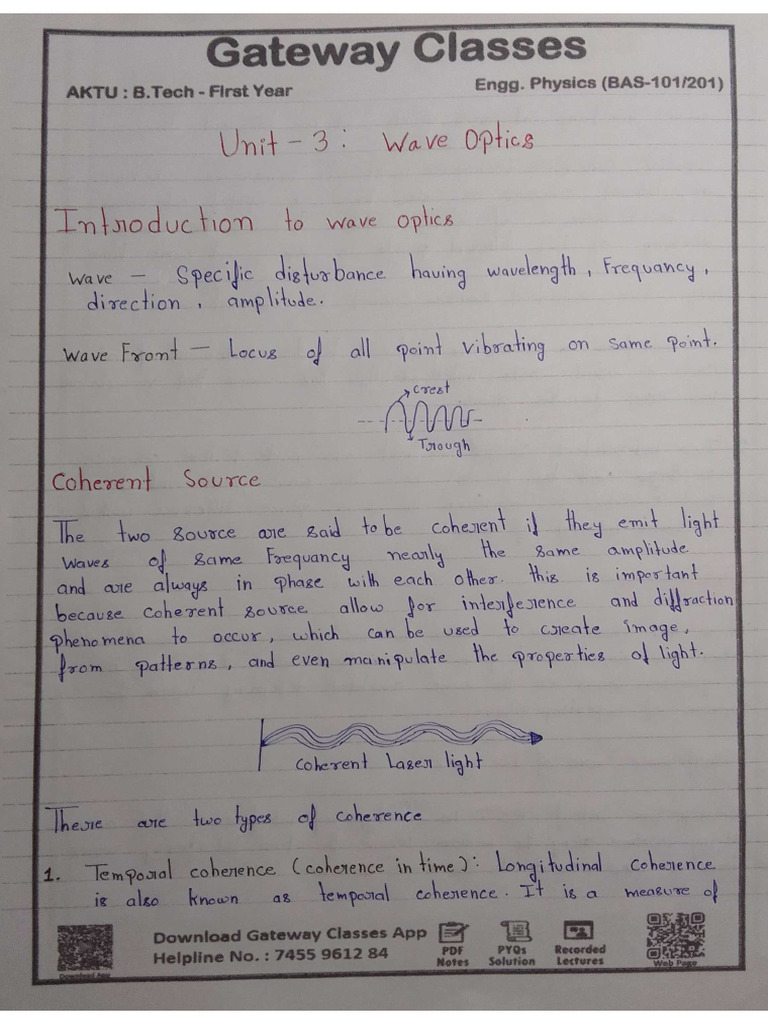 Gateway Classes
AKTU : B.Tech - First Year
Engg. Physics (BAS-101/201)
Unit - 3 : Wave Optics
Introduction to wave optics
Wave — Specific disturbance having wavelength, Frequancy,
direction, amplitude.
Wave Front — Locus of all point vibrating on same point.
Crest
Trough
Coherent Source
The two source are said to be coherent if they emit light
waves of same Frequancy nearly the same amplitude
and are always in phase with each other. this is important
because coherent source allow for interference and diffraction
phenomena to occur, which can be used to create image,
from patterns, and even manipulate the properties of light.
Coherent Laser light
There are two types of coherence
1. Temporal coherence (coherence in time): Longitudinal coherence
is also known as temporal coherence. It is a measure of
Download Gateway Classes App
Helpline No. : 7455 9612 84
PDF Notes
PYQs Solution
Recorded Lectures
Download App
Web Page